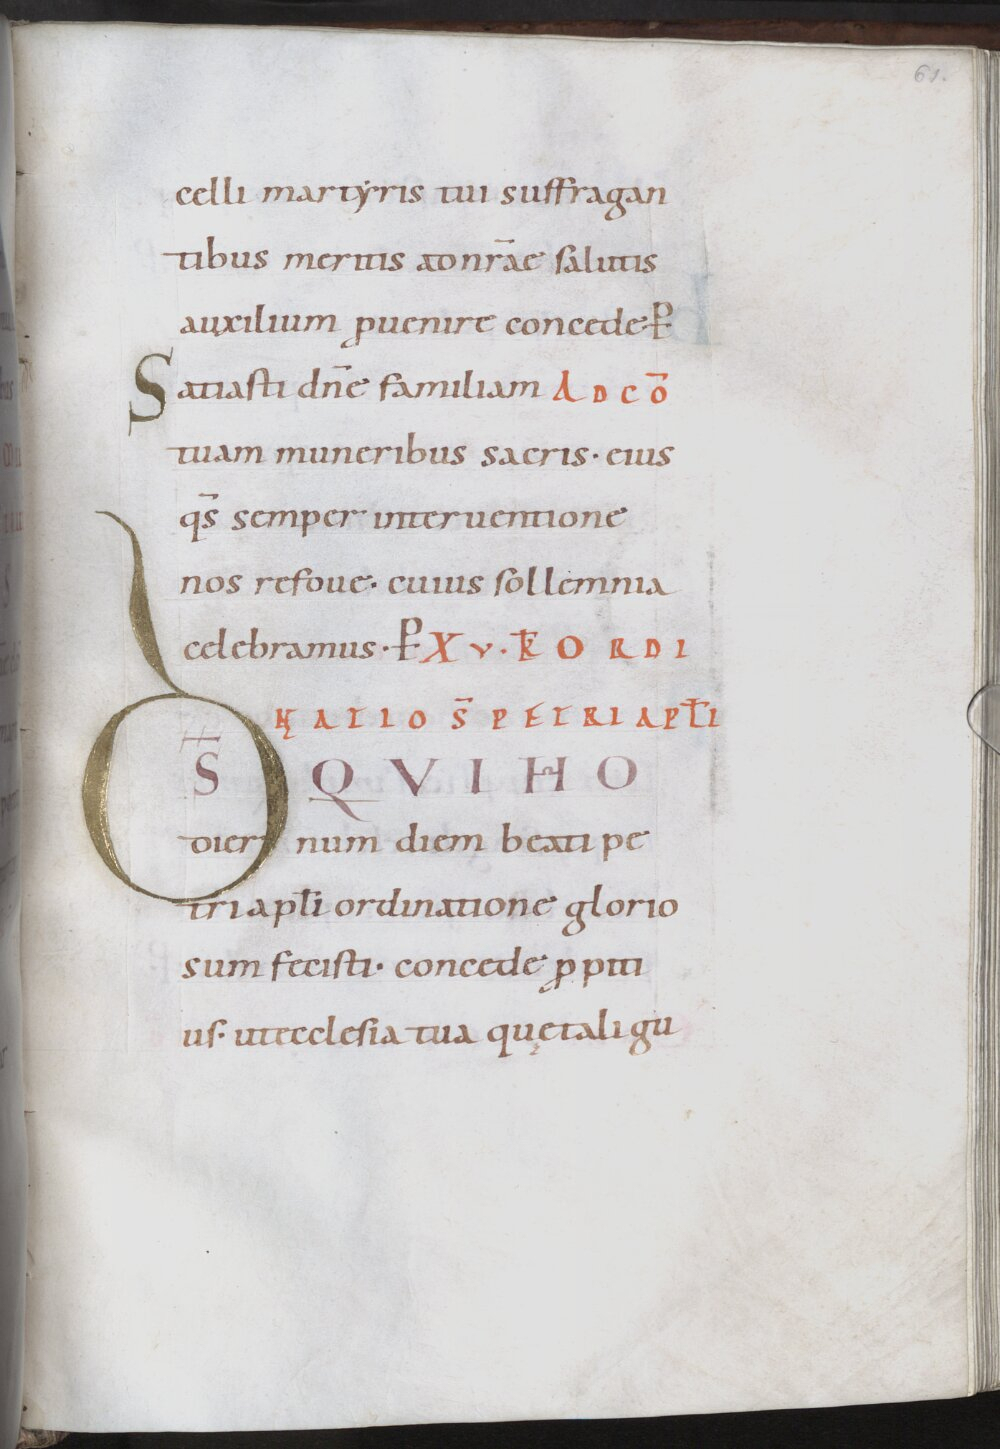 61.
celli martyris tui suffragan
tibus meritis adnr̄ae salutis
auxilium ꝓuenire concede· P̵
Satiasti dn̄e familiam AD CŌ
tuam muneribus sacris· eius
qs̄ semper interuentione
nos refoue· cuius sollemnia
celebramus· P̵ XV· K̄ ORDI
NATIO S̄ PETRI APT̄LI
DS̄ QVI HO
diernum diem beati pe
tri apl̄i ordinatione glorio
sum fecisti· concede ꝓpiti
us· ut ecclesia tua quę tali gu